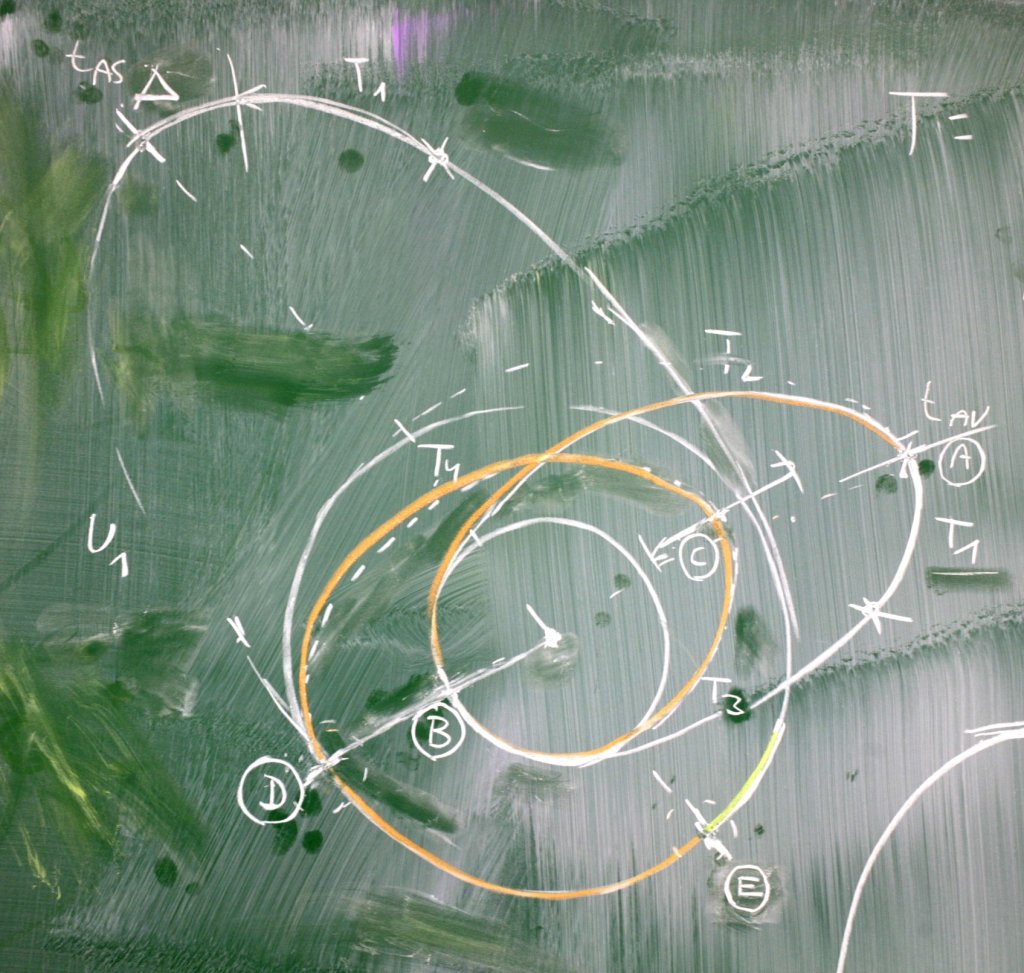 t_AS
T_1
T =
T_2
t_AV
A
T_4
T_1
U_1
C
T_3
B
D
E